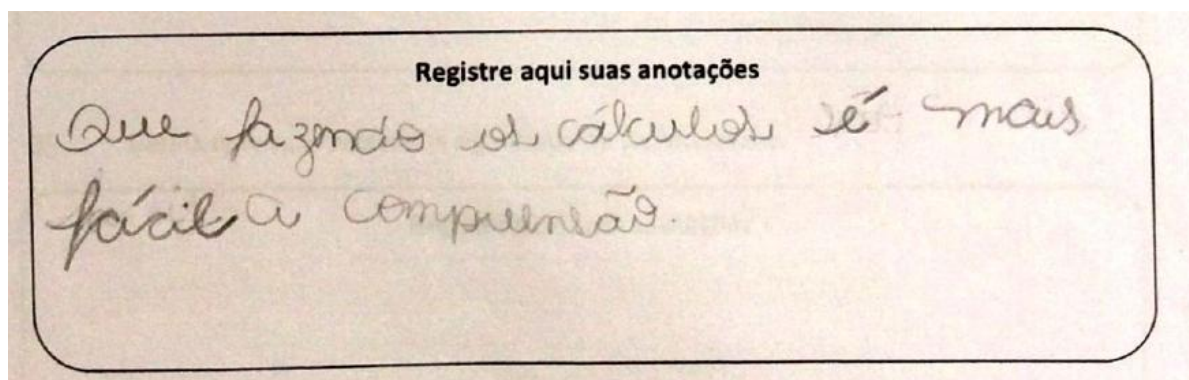 Registre aqui suas anotações
Que fazendo os cálculos é mais
fácil a compreensão.